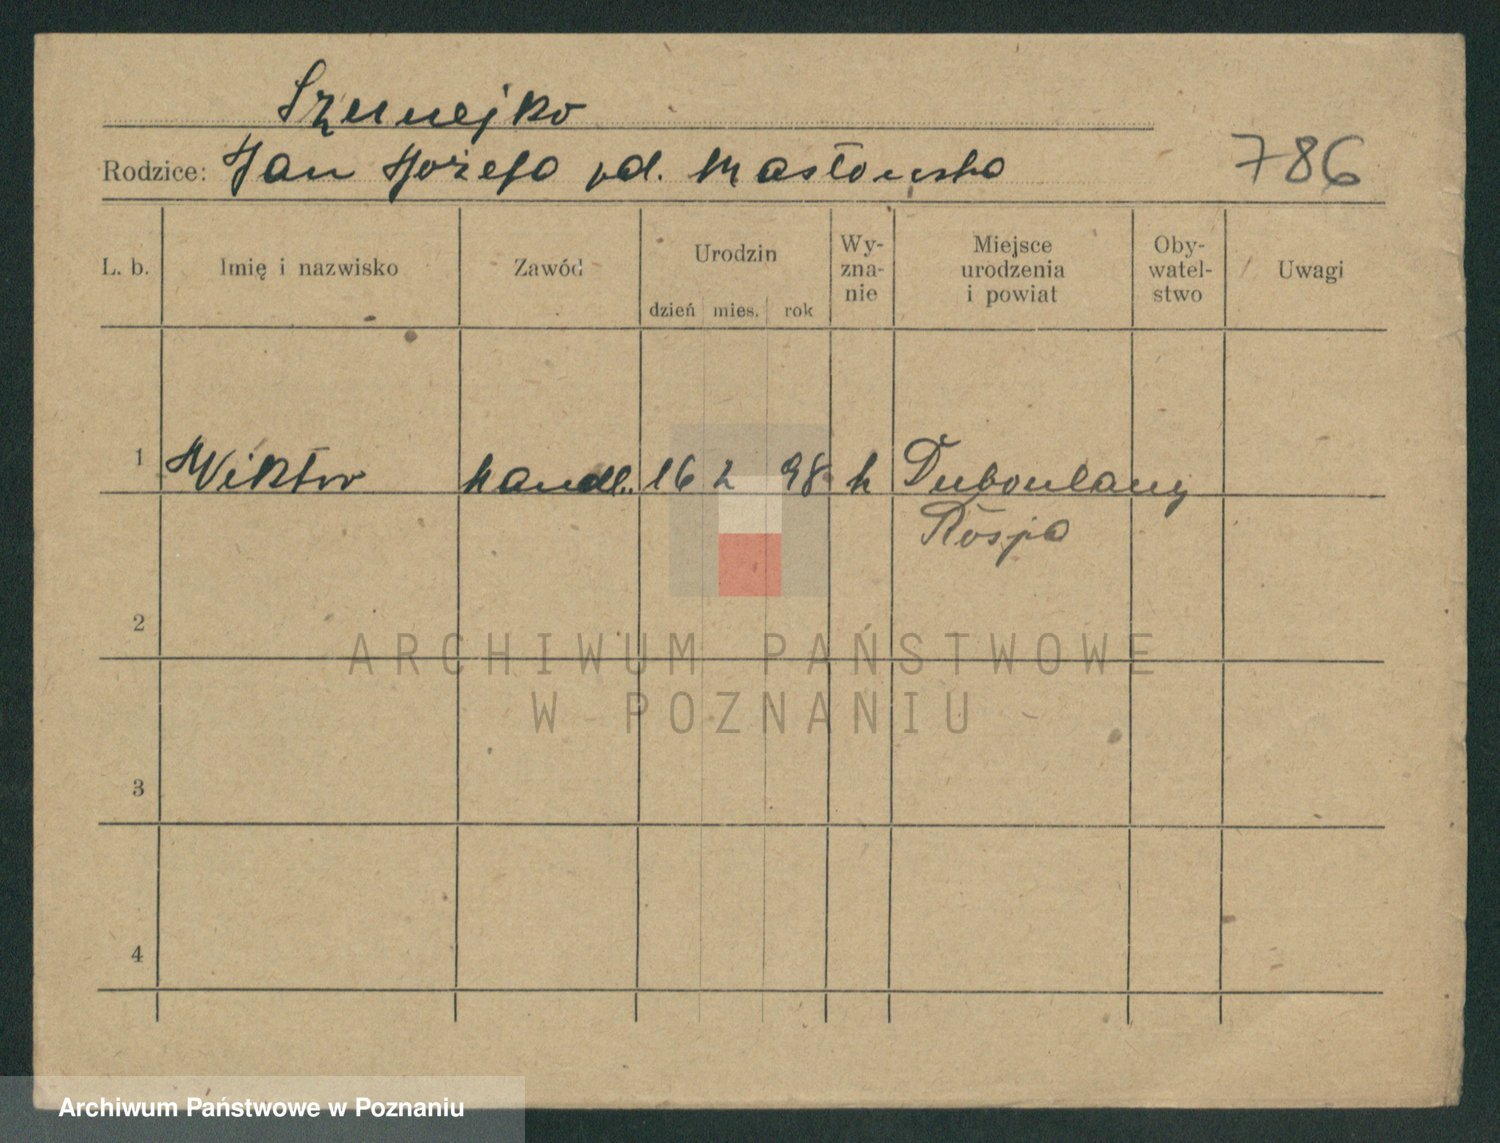 Szumejko
Rodzice: Jan Józefa zd. Masłowska 786
L. b. Imię i nazwisko Zawód Urodzin dzień mies. rok Wy-zna-nie Miejsce urodzenia i powiat Oby-watel-stwo Uwagi
1 Wiktor handl. 16 2 98 k Dubowlany
Rosja
2
ARCHIWUM PAŃSTWOWE
W POZNANIU
3
4
Archiwum Państwowe w Poznaniu